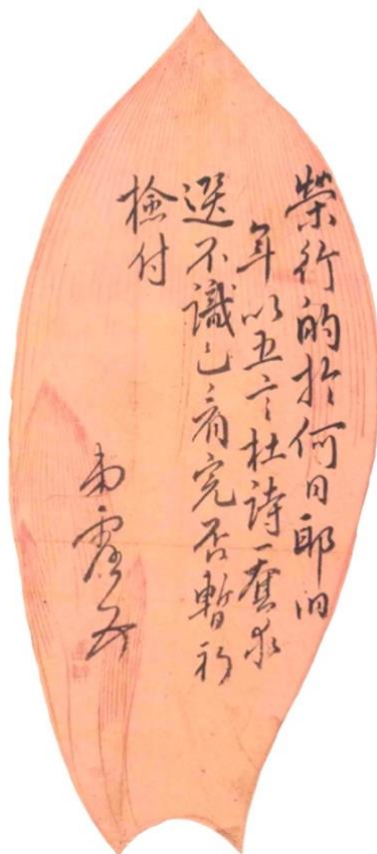 榮行的於何日耶旧
年以五言杜詩一套求
選不識已看完否暫祈
檢付
弟